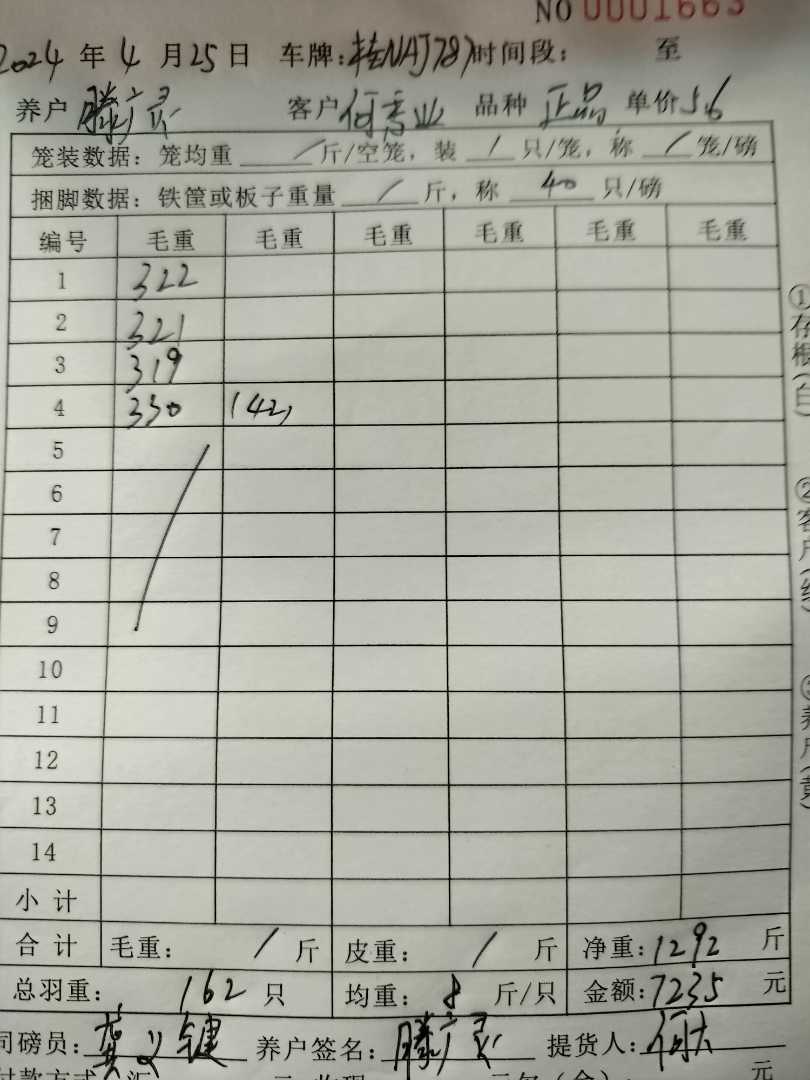 NO 0001663
2024 年 4 月 25 日 车牌: 桂NAJ787 时间段: 至
养户 滕广灵 客户 何 业 品种 正品 单价 5.6
笼装数据: 笼均重 / 斤/空笼, 装 / 只/笼, 称 / 笼/磅
捆脚数据: 铁筐或板子重量 / 斤, 称 40 只/磅
编号 毛重 毛重 毛重 毛重 毛重 毛重
1 322
2 321
3 319
4 330 (42)
5
6
7
8
9
10
11
12
13
14
小 计
合 计 毛重: / 斤 皮重: / 斤 净重: 1292 斤
总羽重: 162 只 均重: 8 斤/只 金额: 7235 元
司磅员: 养户签名: 滕广灵 提货人:
付款方式 汇 元 收现 元欠(余) 元
①存根(白)
②客户(红)
③养户(黄)